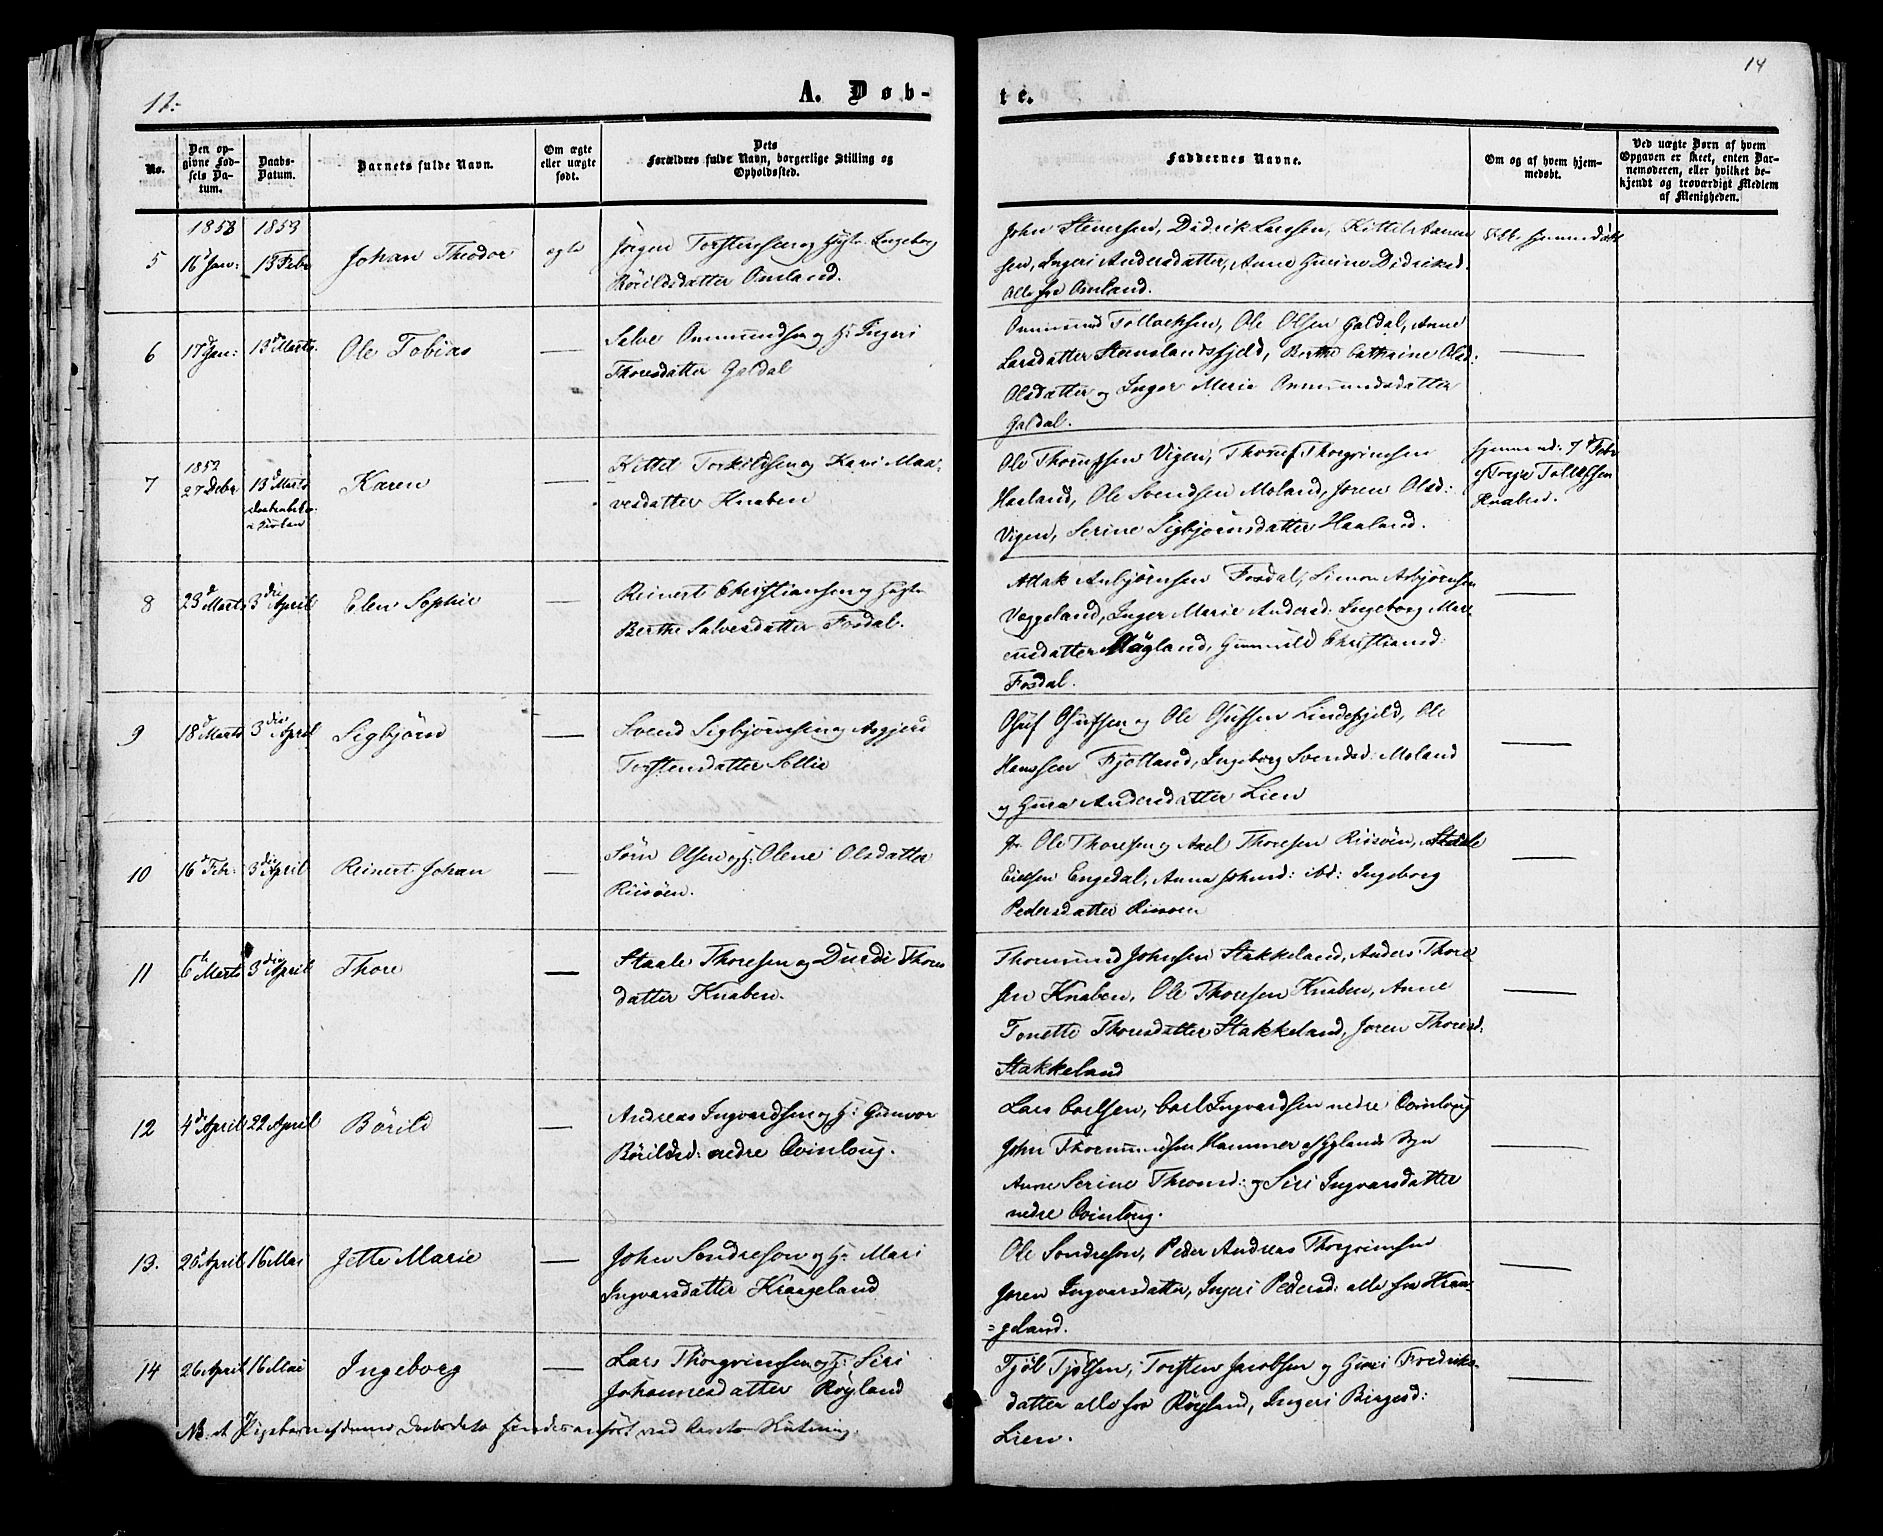 14
A. Døb-
te.
No.
Den op-
givne Fød-
sels Da-
tum.
Daabs-
Datum.
Barnets fulde Navn.
Om ægte
eller uægte
født.
Dets
Forældres fulde Navn, borgerlige Stilling og
Opholdssted.
Faddernes Navne.
Om og af hvem hjem-
medøbt.
Ved uægte Børn af hvem
Opgaven er skeet, enten Bar-
nemoderen, eller hvilket be-
kjendt og troværdigt Medlem
af Menigheden.
1853 1853
5 16 Jan: 13 Febr Johan Theodor ægte
Jörgen Torstensen og Hustr. Ingeborg
Börildsdatter Omland.
John Stenersen, Didrik Larsen, Kittel
sen, Ingeri Andersdatter, Anne Gurine Didriksd.
Alle fra Omland.
6 17 Jan: 13 Marts Ole Tobias —
Salve Ommundsen og H: Ingeri
Thoresdatter Galdal
Ommund Tollachsen, Ole Olsen Galdal, Anne
Larsdatter Stenslandsfjeld, Berthe Cathrine Olsd:
Olsdatter og Inger Marie Ommundsdatter
Galdal.
—
7 1852
27 Debr 13 Marts Karen —
Kittel Torkildsen og Kari Maa-
vesdatter Knaben
Ole Thorufsen Vigen, Thoruf Thorgrimsen
Haaland, Ole Svendsen Moland, Joren Olsd:
Vigen, Serine Sigbjørnsdatter Haaland.
7 Febr
Knaben.
8 23 Marts 3die April Elen Sophie —
Reinert Christiansen og Hustr.
Berthe Salvesdatter Fosdal.
Atlak Asbjørnsen Fosdal, Simon Asbjørnsen
Væggeland, Inger Marie Andersd: Ingeborg Mar-
Mögland, Gunnild Christiansd:
Fosdal.
—
9 18 Marts 3die April Sigbjörn —
Svend Sigbjörnsen og Asgjerd
Torstensdatter Sollie
Oluf Olufsen og Ole Olufsen Lindefjeld, Ole
Hansen Fjotland, Ingeborg Svendsd: Moland
og Gura Andersdatter Lien
—
10 16 Febr: 3die April Reinert Johan —
Sörn Olsen og H: Olene Olsdatter
Riisöen.
Ole Thoresen og Axel Thoresen Riisöen, Staale
Engedal, Anna Johnsd: ibd: Ingeborg
Pedersdatter Riisöen
—
11 6te Marts 3die April Thore —
Staale Thoresen og Durdi Thores
datter Knaben.
Thormund Johnsen Stakkeland, Anders Thore
sen Knaben, Ole Thoresen Knaben, Anne
Tonette Thoresdatter Stakkeland, Joren Thoresd:
Stakkeland
—
12 4de April 22 April Börild —
Andreas Ingvardsen og H: Gunvor
Börildsd: nedre Qvinloug.
Lars Carlsen, Carl Ingvardsen nedre Qvinloug
John Thormundsen Hammer af Gylands Sogn
Anne Serine Thromsd: og Siri Ingvarsdatter
nedre Qvinloug.
—
13. 20 April 16 Mai Jette Marie —
John Sondresøn og H: Mari
Ingvarsdatter Kraageland
Ole Sondresøn, Peder Andreas Thorgrimsen
Joren Ingvarsdatter, Ingeri Pedersd: alle fra Kraa-
=geland.
—
14 26 April 16 Mai Ingeborg —
Lars Thorgrimsen og H: Siri
Johannesdatter Röyland
Tjöl Tjölsen, Torsten Jacobsen og Guri Fredriks-
datter alle fra Röyland, Ingeri Birgesd:
Lien.
—
NB. et Pigebarn af denne Daabsdato findes anført ved næste Slutning.